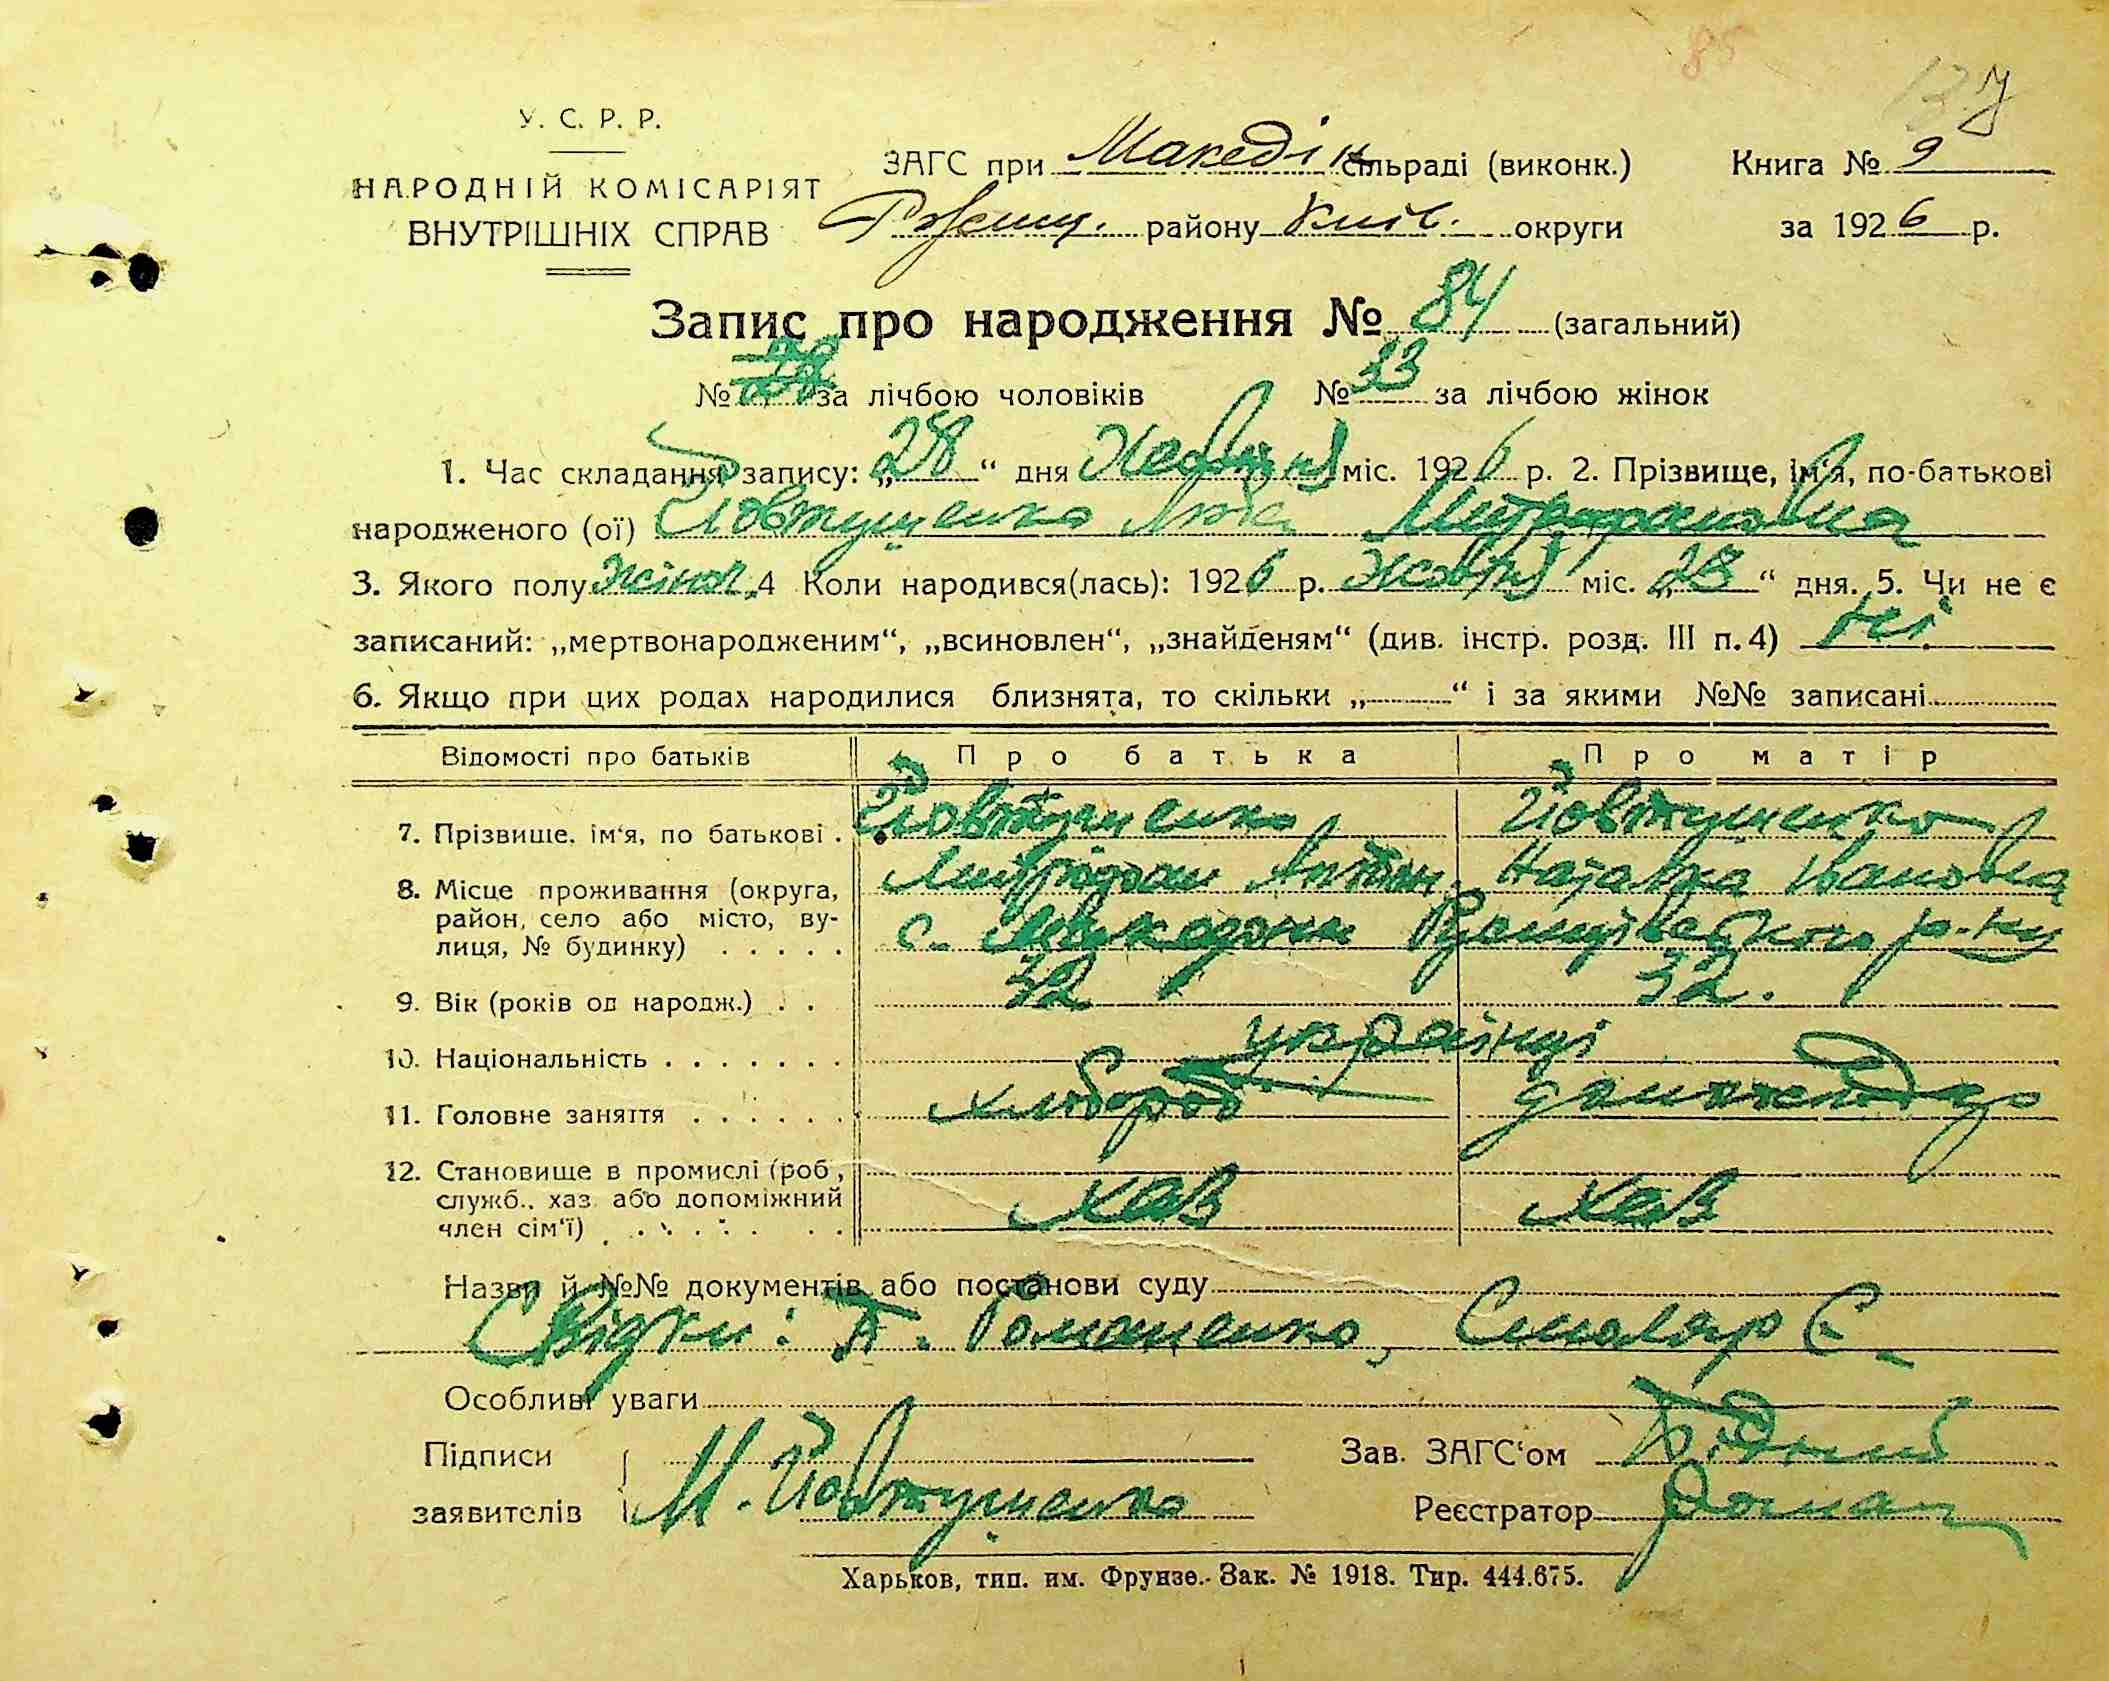 85
137
У. С. Р. Р.
НАРОДНІЙ КОМІСАРІЯТ
ВНУТРІШНІХ СПРАВ
ЗАГС при Македін сільраді (виконк.) Книга № 9
Ржищ. району Київ. округи за 1926 р.
Запис про народження № 84 (загальний)
№ за лічбою чоловіків № 33 за лічбою жінок
1. Час складання запису: „28“ дня Жовтня міс. 1926 р. 2. Прізвище, ім‘я, по-батькові
народженого (ої) Йовтушенко Люба Митрофановна
3. Якого полу жіноч. 4 Коли народився(лась): 1926 р. Жовтня міс. „28“ дня. 5. Чи не є
записаний: „мертвонародженим“, „всиновлен“, „знайденям“ (див. інстр. розд. III п. 4) Ні.
6. Якщо при цих родах народилися близнята, то скільки „ “ і за якими №№ записані
Відомості про батьків Про батька Про матір
7. Прізвище, ім‘я, по батькові . Йовтушенко Йовтушенко
Митрофан Антон. Наталка Івановна
8. Місце проживання (округа,
район, село або місто, ву-
лиця, № будинку) . . . . . с. Македони Ржищівського р-ну
9. Вік (років од народж.) . . 32 32.
10. Національність . . . . . . . українці
11. Головне заняття . . . . . . хлібороб
12. Становище в промислі (роб.,
служб., хаз. або допоміжний
член сім‘ї) . . . . . . . хаз хаз
Назви й №№ документів або постанови суду
Свідки: Т. Романенко, Смоляр Є.
Особливі уваги
Підписи
заявителів М. Йовтушенко
Зав. ЗАГС‘ом Бідний
Реєстратор
Харьков, тип. им. Фрунзе.- Зак. № 1918. Тир. 444.675.